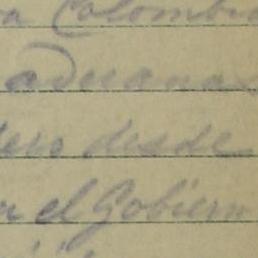 a Colombia
aduanas
desde
el Gobiern